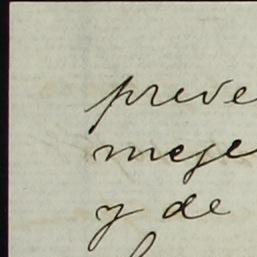 preve
meje
y de